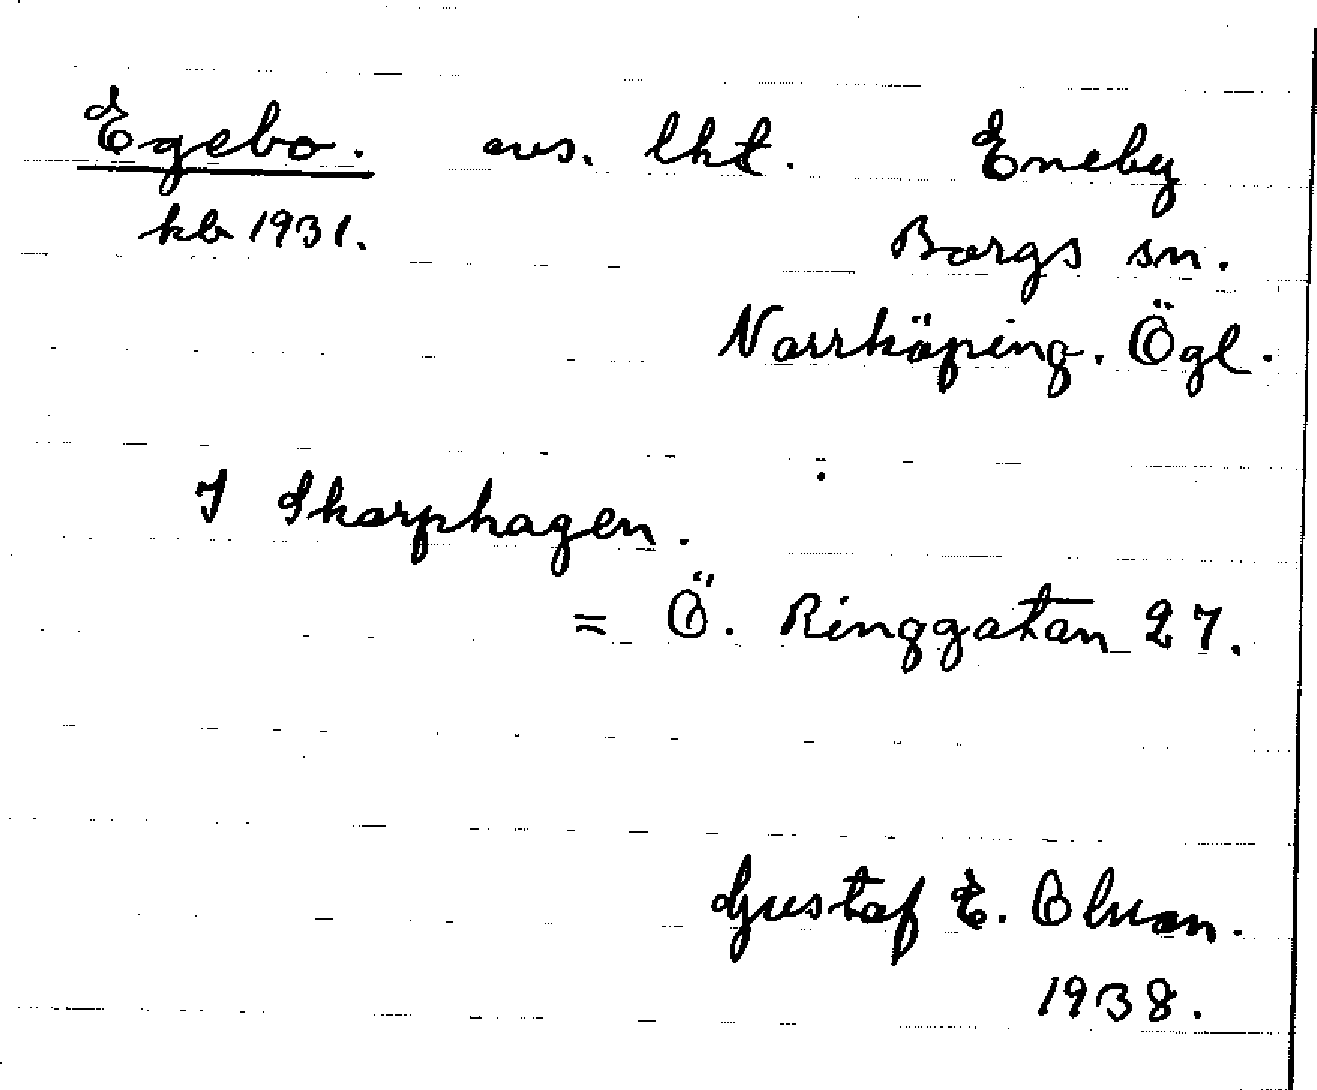 Egebo. avs. lht. Eneby
kb 1931. Borgs sn.
Norrköping. Ögl.
I Skarphagen.
= Ö. Ringgatan 27.
Gustaf E. Olsson.
1938.